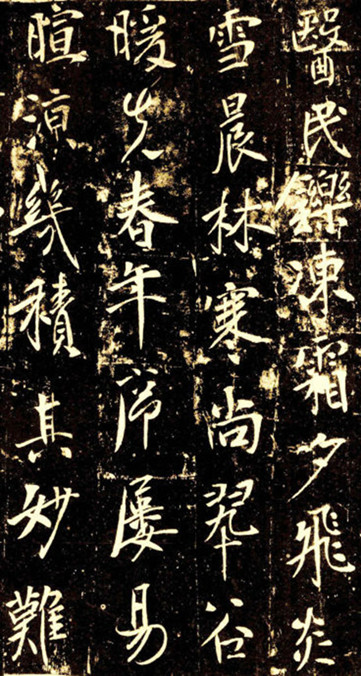 醫民鑠凍霜夕飛炎
雪晨林寒尚翠谷
暖先春年節屢易
暄涼幾積其妙難